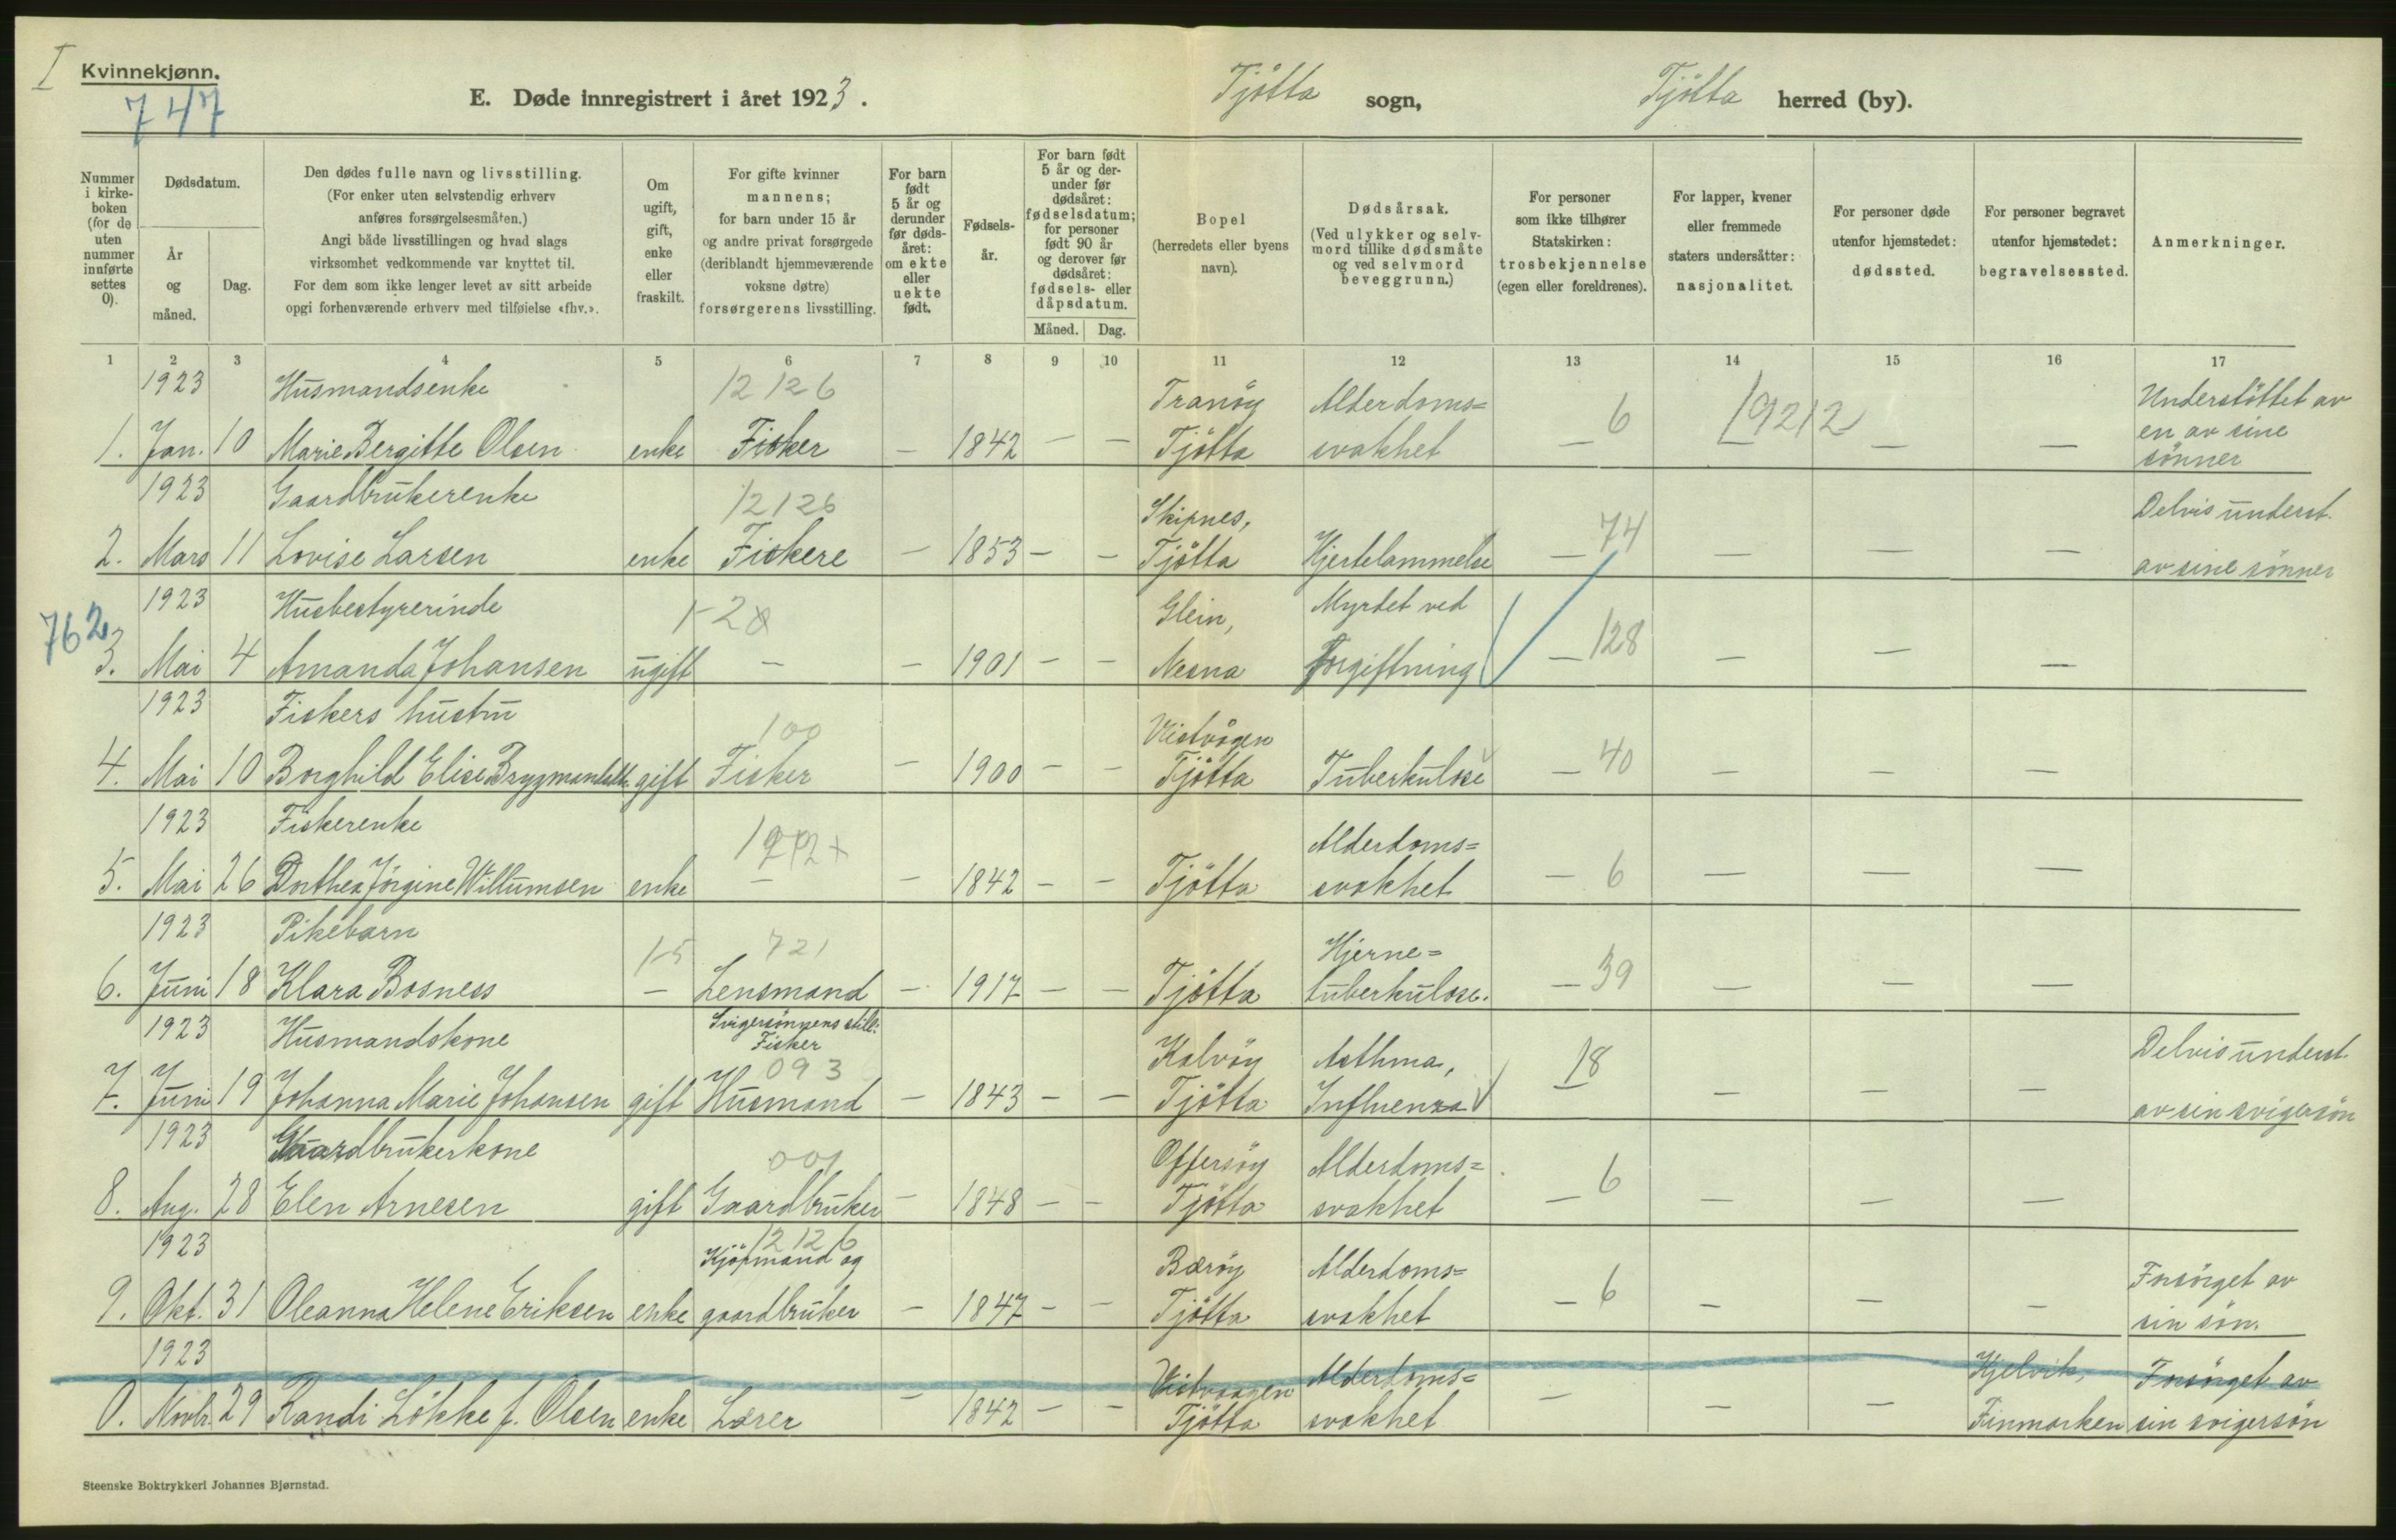 I
Kvinnekjønn.
747
E. Døde innregistrert i året 1923.
Tjötta sogn,
Tjötta herred (by).
Nummer i kirke-boken (for de uten nummer innførte settes 0).
Dødsdatum.
År og måned.
Dag.
Den dødes fulle navn og livsstilling.
(For enker uten selvstendig erhverv anføres forsørgelsesmåten.)
Angi både livsstillingen og hvad slags virksomhet vedkommende var knyttet til.
For dem som ikke lenger levet av sitt arbeide opgi forhenværende erhverv med tilføielse «fhv.».
Om ugift, gift, enke eller fraskilt.
For gifte kvinner mannens; for barn under 15 år og andre privat forsørgede (deriblandt hjemmeværende voksne døtre) forsørgerens livsstilling.
For barn født 5 år og derunder før døds-året: om ekte eller uekte født.
Fødsels-år.
For barn født 5 år og der-under før dødsåret: fødselsdatum; for personer født 90 år og derover før dødsåret: fødsels- eller dåpsdatum.
Måned.
Dag.
Bopel (herredets eller byens navn).
Dødsårsak.
(Ved ulykker og selv-mord tillike dødsmåte og ved selvmord beveggrunn.)
For personer som ikke tilhører Statskirken: trosbekjennelse (egen eller foreldrenes).
For lapper, kvener eller fremmede staters undersåtter: nasjonalitet.
For personer døde utenfor hjemstedet: dødssted.
For personer begravet utenfor hjemstedet: begravelsessted.
Anmerkninger.
1 2 3 4 5 6 7 8 9 10 11 12 13 14 15 16 17
1923 Husmandsenke 12126 Tranöy Alderdoms= 6 19212 Understöttet av
en av sine
1. Jan. 10 Marie Bergitte Olsen enke Fisker — 1842 — — Tjötta svakhet — — — sönner
1923 Gaardbrukerenke 12126 Skipnes, 74 Delvis underst.
2. Mars 11 Lovise Larsen enke Fiskere — 1853 — — Tjötta Hjertelammelse — — — — av sine sönner
762
1923 Husbestyrerinde Glein, Myrdet ved 128
3. Mai 4 Amanda Johansen ugift — — 1901 — — Nesna Forgiftning — — — —
1923 Fiskers hustru 100 Vistvågen 40
4. Mai 10 Borghild Elise gift Fisker — 1900 — — Tjötta Tuberkulose — — — —
1923 Fiskerenke Alderdoms= 6
5. Mai 26 Dorthea Jörgine Willumsen enke — — 1842 — — Tjötta svakhet — — — —
1923 Pikebarn 15 721 Hjerne= 39
6. Juni 18 Klara Bosness — Lensmand — 1917 — — Tjötta tuberkulose. — — — —
1923 Husmandskone Svigersönnens still:
Fisker
093 Kalvöy Asthma, 18 Delvis underst.
7. Juni 19 Johanna Marie Johansen gift Husmand — 1843 — — Tjötta Influenza — — — — av sin svigersön
1923 Gaardbrukerkone 001 Offersöy Alderdoms= 6
8. Aug. 28 Elen Arnesen gift Gaardbruker — 1848 — — Tjötta svakhet — — — —
1923 12126
Kjöpmand og Bæröy Alderdoms= 6 Forsörget av
9. Okt. 31 Oleanna Helene Eriksen enke gaardbruker — 1847 — — Tjötta svakhet — — — — sin sön.
1923 Vistvaagen Alderdoms= Hjelvik, Forsörget av
0. Novbr. 29 Randi Lökke f. Olsen enke Lærer — 1842 — — Tjötta svakhet — — — Finmarken sin svigersön
Steenske Boktrykkeri Johannes Bjørnstad.